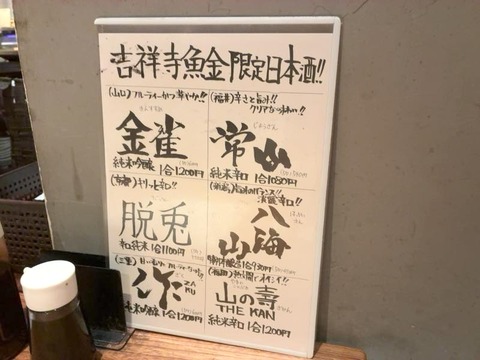 吉祥寺魚金限定日本酒!!
(山口)フルーティーかつ華やか!!
金雀
純米吟醸 1合1200円
(福井)辛さと旨み!!
クリアな味わい!!
じょうざん
常山
純米辛口 1合1080円
(京都)キリッと辛口!!
脱兎
辛口純米 1合1100円
淡麗辛口!!
はっかい
さん
八海
山
特別本醸造 1合930円
(三重)
ZA
KU
純米吟醸 1合1200円
(福岡)
山の壽
THE KAN
純米辛口 1合1200円